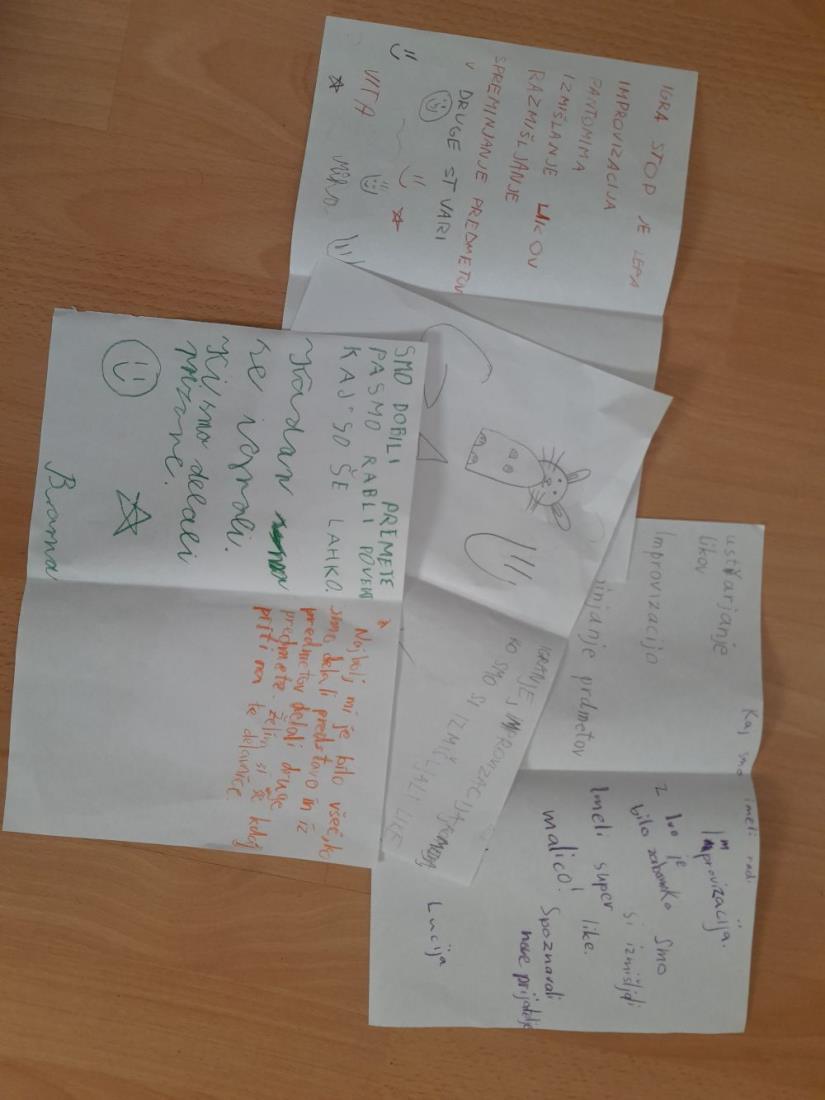 IGRA STOP JE LEPA
IMPROVIZACIJA
PANTOMIMA
IZMIŠLANJE LIKOV
RAZMIŠLJANJE
SPREMINJANJE PREDMETOV
V DRUGE STVARI
VITA
Miha
SMO DOBILI PREMETE
PASMO RABLI POVEDAT
KAJ SO ŠE LAHKO.
se igrali.
Ki smo delali
Najbolj mi je bilo všeč, ko
smo delali predstavo in iz
predmetov delali druge
predmete. želim si še kdaj
priti na te delavnice.
IGRANJE, IMPROVIZACIJA
KO SMO SI IZMIŠLJALI LIKE
Kaj smo imeli radi
ustvarjanje
likov
Improvizacijo
injanje prdmetov
Improvizacija.
bilo zabavno ko smo
si izmišljali
Imeli super like.
malico! Spoznavali
nove prijatelje
Lucija